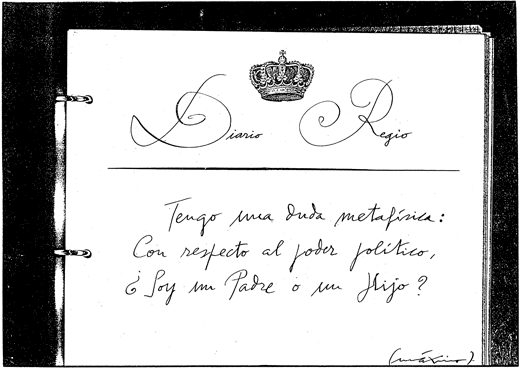 Diario Regio
Tengo una duda metafísica:
Con respecto al poder político,
¿Soy un Padre o un Hijo?
(máximo).